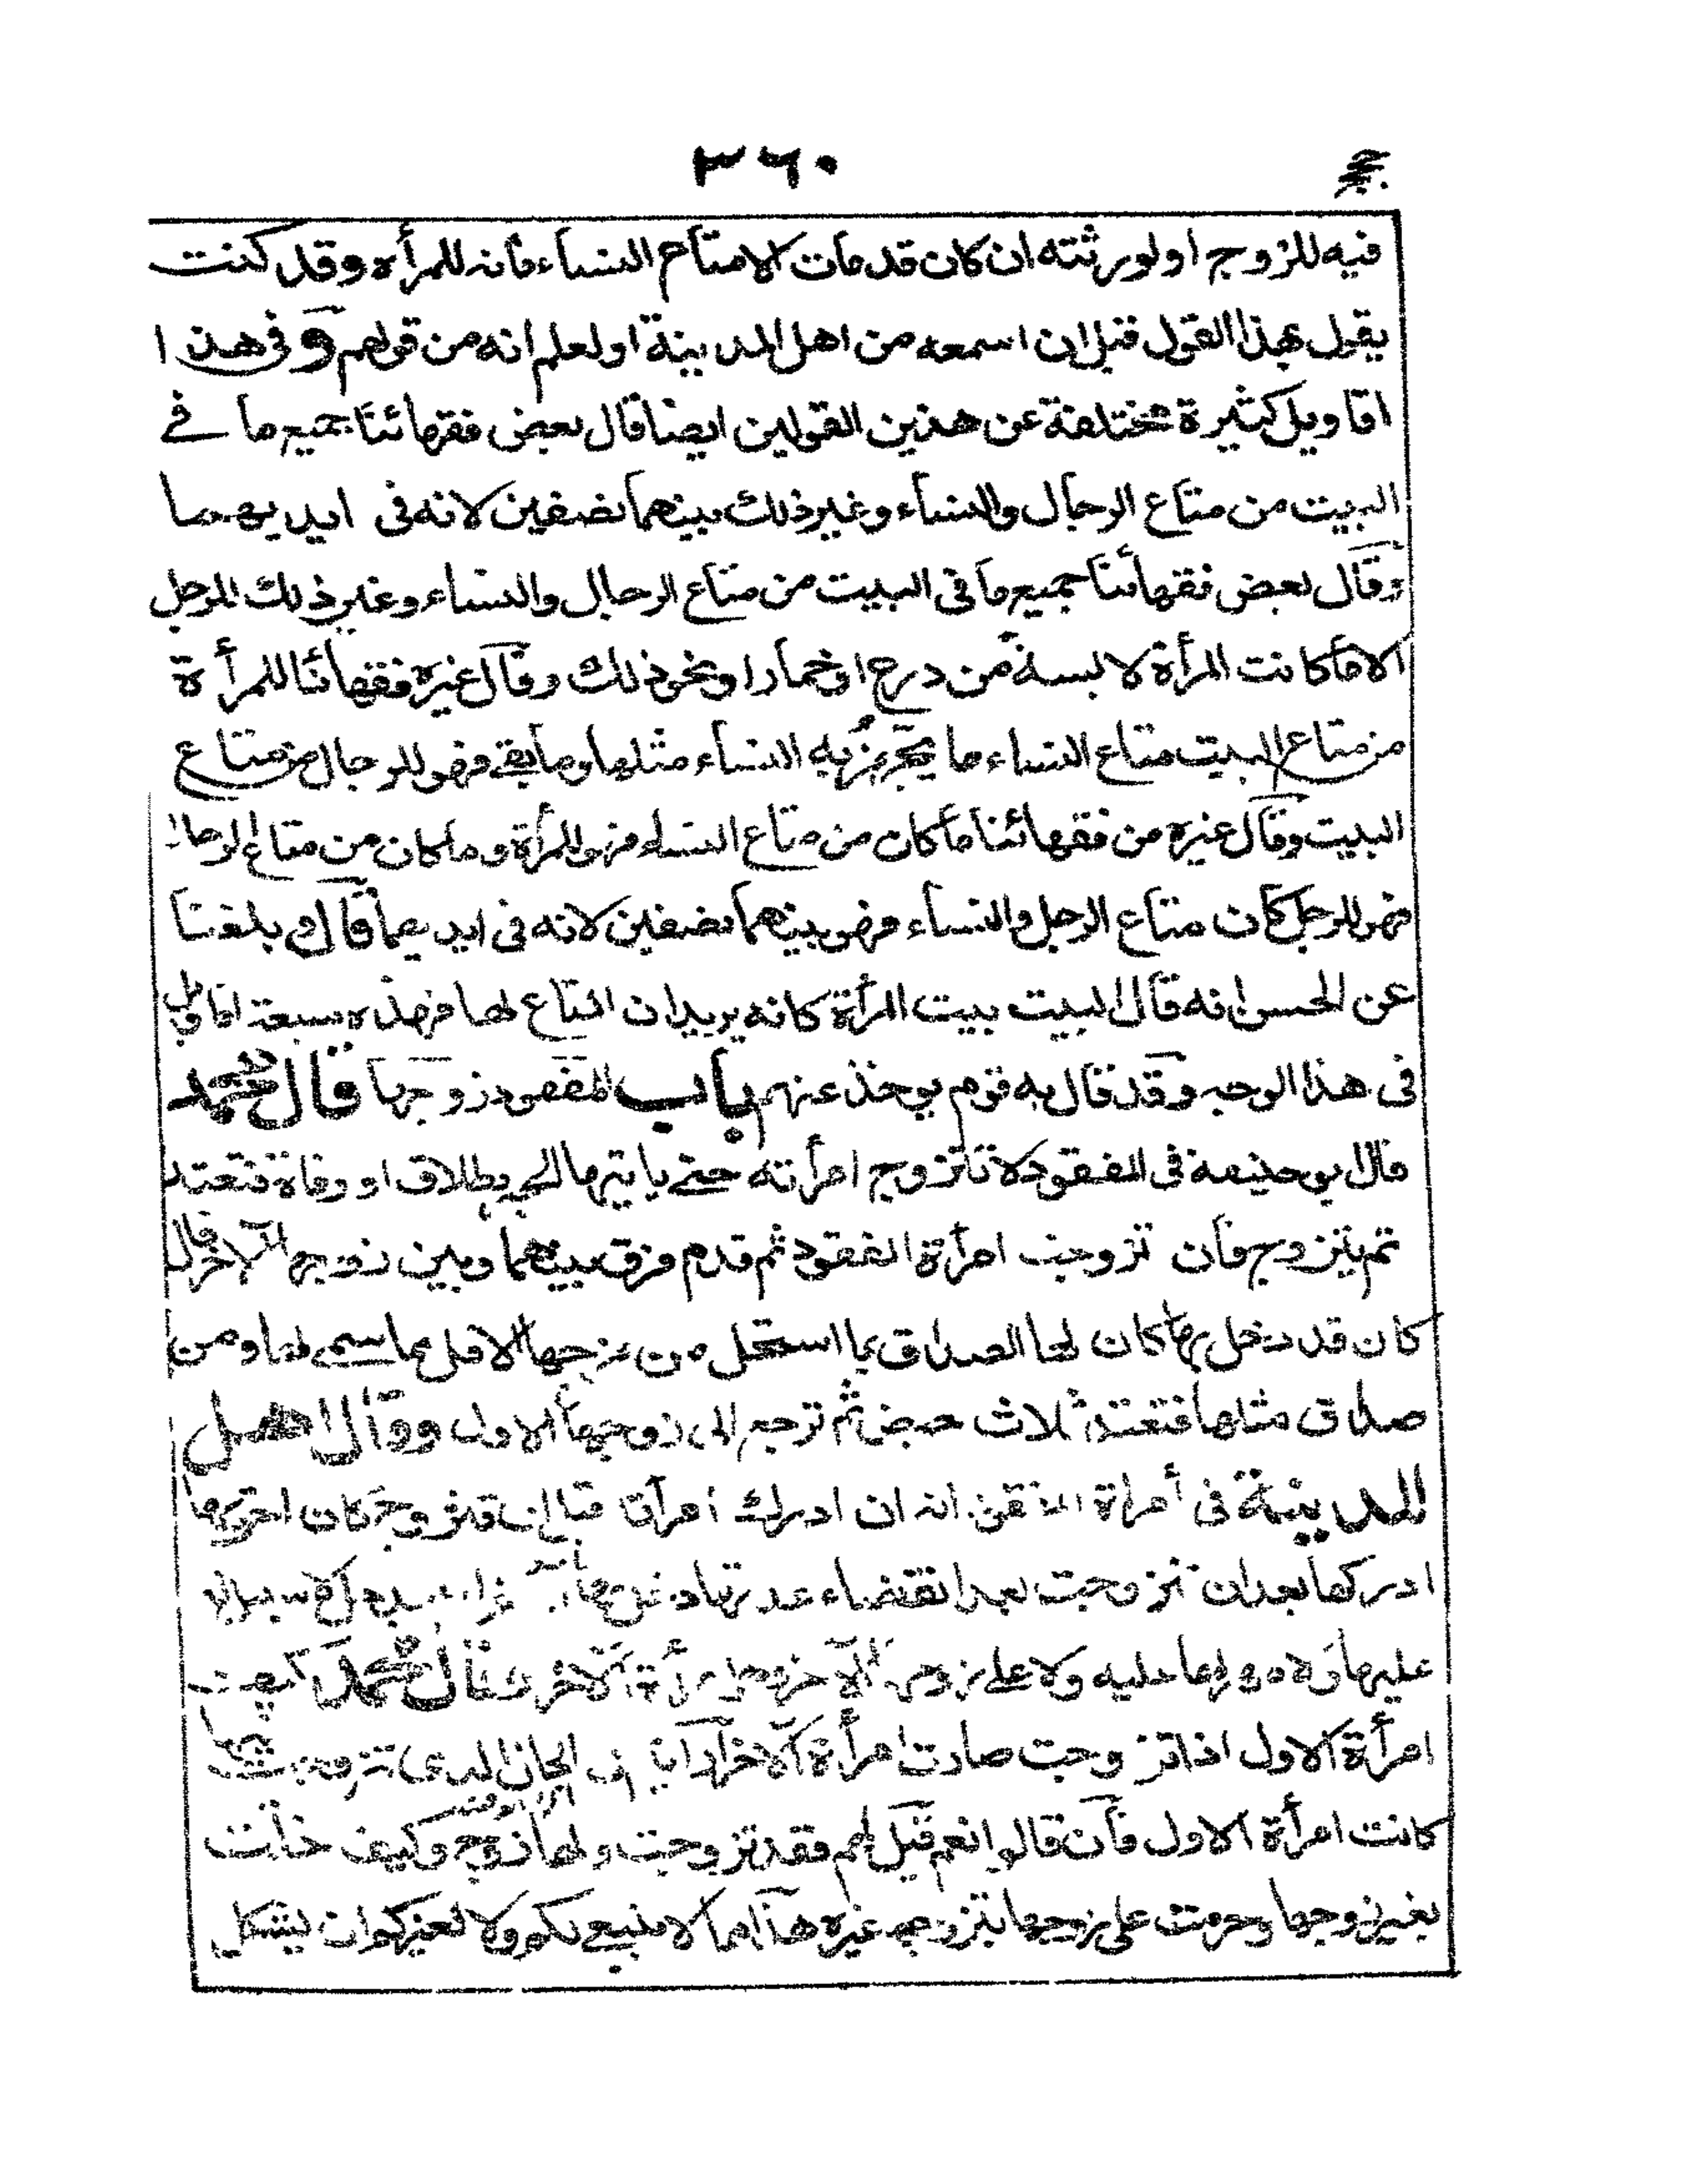 ٣٦٠
فيه للزوج اولورثته ان كان قد مات الا متاع النساء فانه للمرأة وقد كنت
يقول بهذا القول قبل ان اسمعه من اهل المدينة او لعلم انه من قولهم وفى هذا
اقاويل كثيرة مختلفة عن هذين القولين ايضا قال بعض فقهائنا جميع ما فے
البيت من متاع الرجال والنساء وغير ذلك بينهما نصفين لانه فى ايديهما
وقال بعض فقهائنا جميع ما فى البيت من متاع الرجال والنساء وغير ذلك للرجل
الا ما كانت المرأة لابسة من درع او خمار او نحو ذلك وقال غيره فقهائنا للمرأة
من متاع البيت متاع النساء ما يجهز به النساء مثلها وما بقے فهو للرجال من متاع
البيت وقال غيره من فقهائنا ما كان من متاع النساء فهو للمرأة وما كان من متاع الرجال
فهو للرجل كان متاع الرجل والنساء فهو بينهما نصفين لانه فى ايديهما قال وبلغنا
عن الحسن انه قال البيت بيت المرأة كانه يريد ان المتاع لها فهذه سبعة اقاويل
فى هذا الوجه وقد قال به قوم يوخذ عنهم باب المفقود زوجها قال محمد
قال ابو حنيفة فى المفقود لا تتزوج امرأته حتے ياتيها الخبر بطلاق او وفاة فتعتد
ثم يتزوج فان تزوجت امرأة المفقود ثم قدم فرق بينهما وبين زوجها الآخر قال
كان قد دخل بها كان لها الصداق بما استحل من فرجها الاقل مما سمى لها ومن
صداق مثلها فتعتد ثلاث حيض ثم ترجع الى زوجها الاول وقال اهل
المدينة فى أمراة المفقود انه ان ادرك امرأتا قبل ان تتزوج كان احق بها
ادركها بعد ان تزوجت بعد انقضاء عدتها سبيل له
عليها ولا عليه ولا على زوجها الآخر وهى امرأة الآخر وقال محمد كيف
امرأة الاول اذا تزوجت صارت امرأة الآخر ارأيتم الحال الذى تزوجت
كانت امرأة الاول فان قالوا نعم قيل لهم فقد تزوجت ولها زوج وكيف خانت
بغير زوجها وحرمت على زوجها بتزويج غيره هذا مما لا ينبغى لكم ولا لغيركم ان يشكل